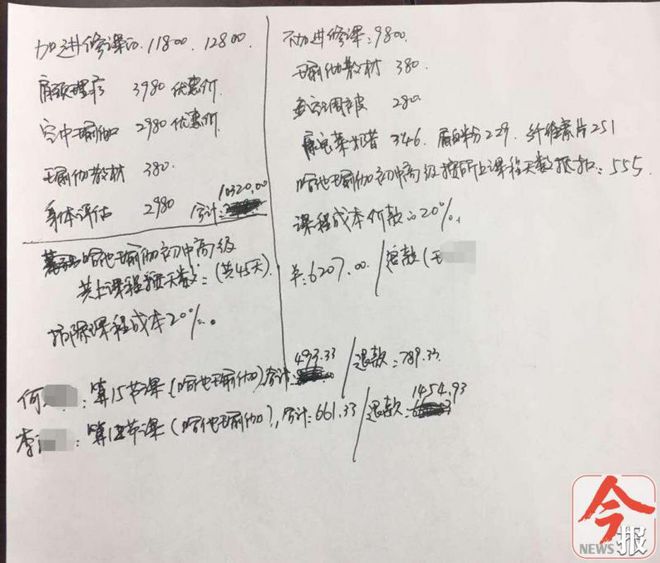 加进修课: 11800. 12800.
肩颈理疗 3980 优惠价.
空中瑜伽 2980 优惠价.
瑜伽教材 380.
身体评估 2980 合计: 10320.00
哈他瑜伽初中高级
共上课程按天数: (共45天)
扣除课程成本20%.
不加进修课: 9800.
瑜伽教材 380.
280.
346. 蛋白粉229. 纤维素片251
哈他瑜伽初中高级按所上课程天数抵扣: 555.
课程成本价款的20%.
共: 6207.00 / 退款(王
何 : 算15节课(哈他瑜伽)合计: 493.33 / 退款: 789.33
李 : 算 节课(哈他瑜伽), 合计: 661.33 / 退款: 1454.93
今报
NEWS